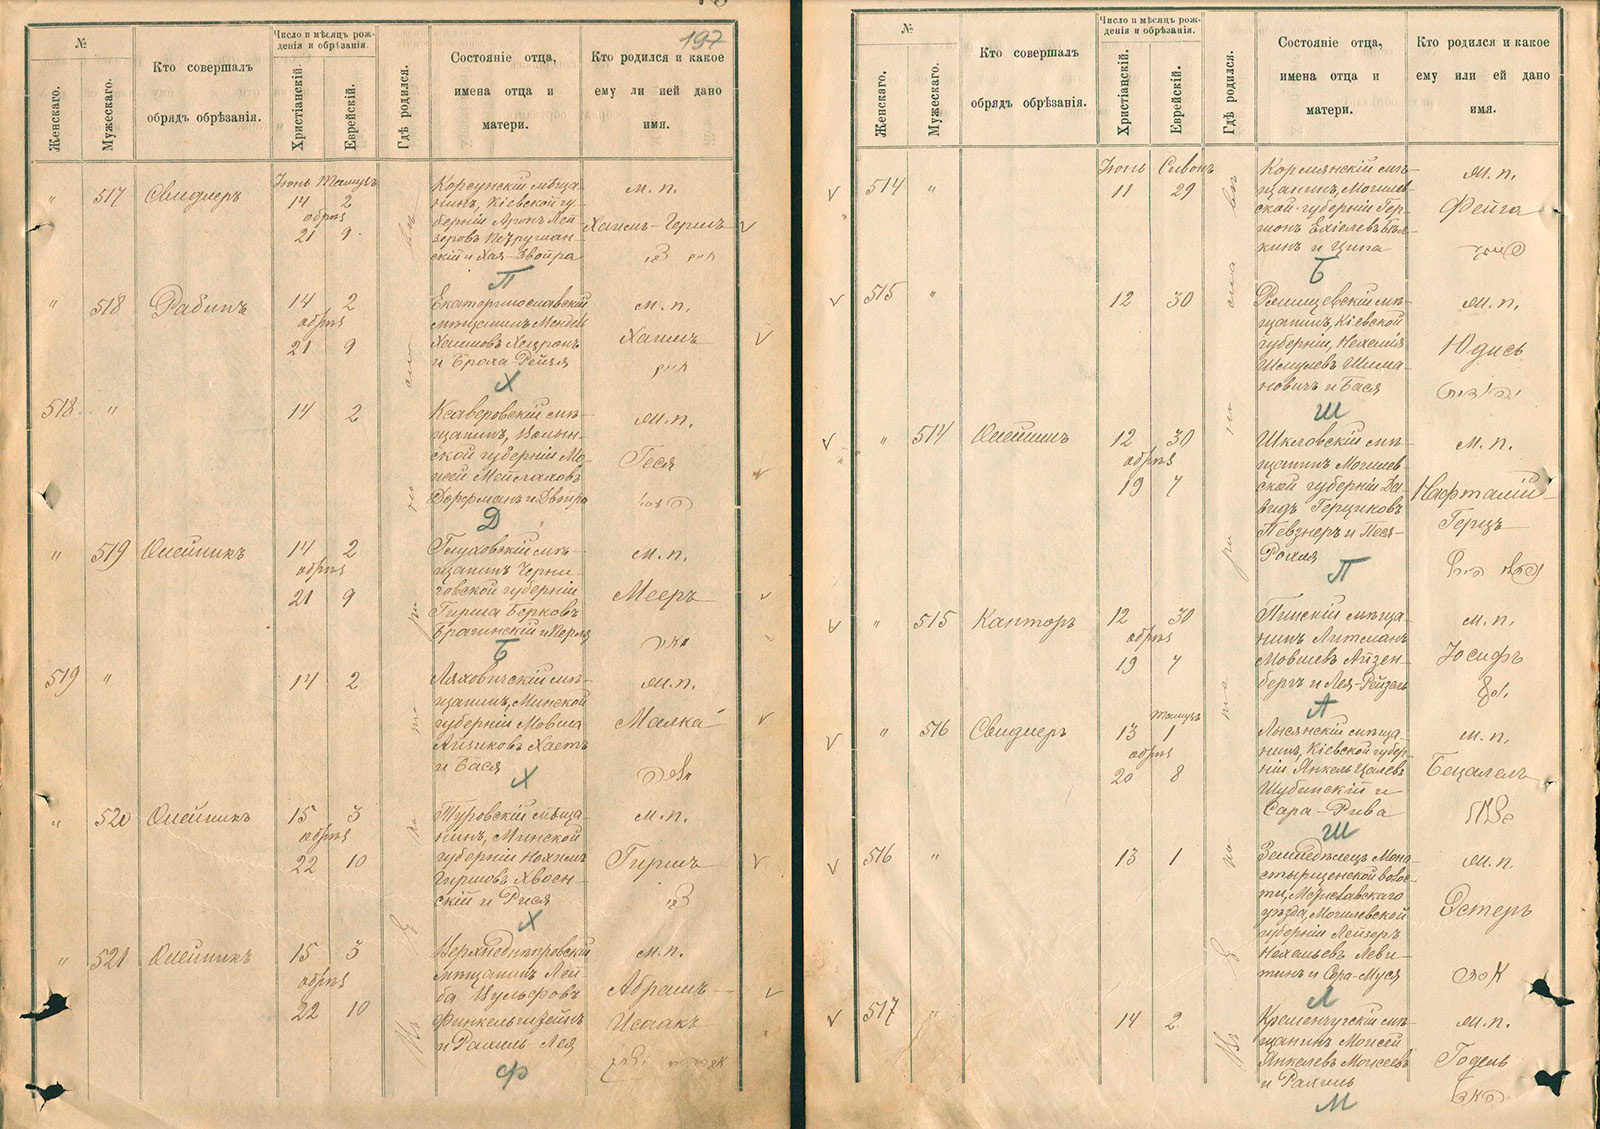 197
№
Женскаго.
Мужескаго.
Кто совершалъ
обрядъ обрѣзанія.
Число и мѣсяцъ рож-
денія и обрѣзанія.
Христіанскій.
Еврейскій.
Гдѣ родился.
Состояніе отца,
имена отца и
матери.
Кто родился и какое
ему или ей дано
имя.
" 517 Свидлеръ
Іюнь Тамузъ
14 2
обрѣз
21 9
Корсунскій мѣща-
нинъ, Кіевской гу-
берніи Аронъ Лей
зеровъ
скій и Хая-Двойра
П
м. п.
Хаимъ-Гершъ
חיים צבי
" 518 Рабинъ
14 2
обрѣз
21 9
Екатеринославскій
мѣщанинъ Мендель
Хаимовъ
и Броха-Рейзя
Х
м. п.
Хаимъ
חיים
518 "
14 2
Ксаверовскій мѣ-
щанинъ, Волын-
ской губерніи Мо-
исей Мейлаховъ
Дорфманъ и Двойра
Д
м. п.
Геся
" 519 Олейникъ
14 2
обрѣз
21 9
Глуховскій мѣ-
щанинъ Черни-
говской губерніи
Гирша Берковъ
Брагинскій и Перля
Б
м. п.
Мееръ
מאיר
519 "
14 2
Ляховичскій мѣ-
щанинъ, Минской
губерніи Мовша
Айзиковъ Хаетъ
и Бася
Х
м. п.
Малка
מלכה
" 520 Олейникъ
15 3
обрѣз
22 10
Туровскій мѣща-
нинъ, Минской
губерніи Нохимъ
Гиршовъ Хвоен-
скій и Рися
Х
м. п.
Гиршъ
צבי
" 521 Олейникъ
15 3
обрѣз
22 10
Верхнеднѣпровскій
мѣщанинъ Лей
ба Вульфовъ
Финкельштейнъ
и Рахиль-Лея
Ф
м. п.
Абрамъ-
Исаакъ
אברהם יצחק
№
Женскаго.
Мужескаго.
Кто совершалъ
обрядъ обрѣзанія.
Число и мѣсяцъ рож-
денія и обрѣзанія.
Христіанскій.
Еврейскій.
Гдѣ родился.
Состояніе отца,
имена отца и
матери.
Кто родился и какое
ему или ей дано
имя.
514 "
Іюнь Сивонъ
11 29
Кормянскій мѣ-
щанинъ, Могилев-
ской губерніи Гер-
шонъ Ехіелевъ
кинъ и Ципа
Б
м. п.
Фейга
פייגע
515 "
12 30
мѣ-
щанинъ, Кіевской
губерніи, Нехемія
Шмулевъ Шима-
новичъ и Бася
Ш
м. п.
Юдисъ
יהודית
" 514 Олейникъ
12 30
обрѣз
19 7
Шкловскій мѣ-
щанинъ Могилев-
ской губерніи Да-
видъ Герциковъ
Певзнеръ и Песя-
Рохля
П
м. п.
Нафталій-
Герцъ
נפתלי הירץ
" 515 Канторъ
12 30
обрѣз
19 7
Пинскій мѣща-
нинъ Литманъ
Мовшевъ Айзен-
бергъ и Лея-Рейзель
А
м. п.
Іосифъ
יוסף
" 516 Свидлеръ
Тамузъ
13 1
обрѣз
20 8
Лысянскій мѣща-
нинъ, Кіевской губер-
ніи Янкель Цалевъ
Шубинскій и
Сара-Рива
Ш
м. п.
Бецалелъ
בצלאל
516 "
13 1
Земледѣлецъ Мона-
стырщенской волос-
ти, Мстиславскаго
уѣзда, Могилевской
губерніи Лейзеръ
Нохемьевъ Леви-
тинъ и Сора-Муся
Л
м. п.
Эстеръ
אסתר
517 "
14 2
Кременчугскій мѣ-
щанинъ Моисей
Янкелевъ Моисеевъ
и Рахиль
М
м. п.
Годель